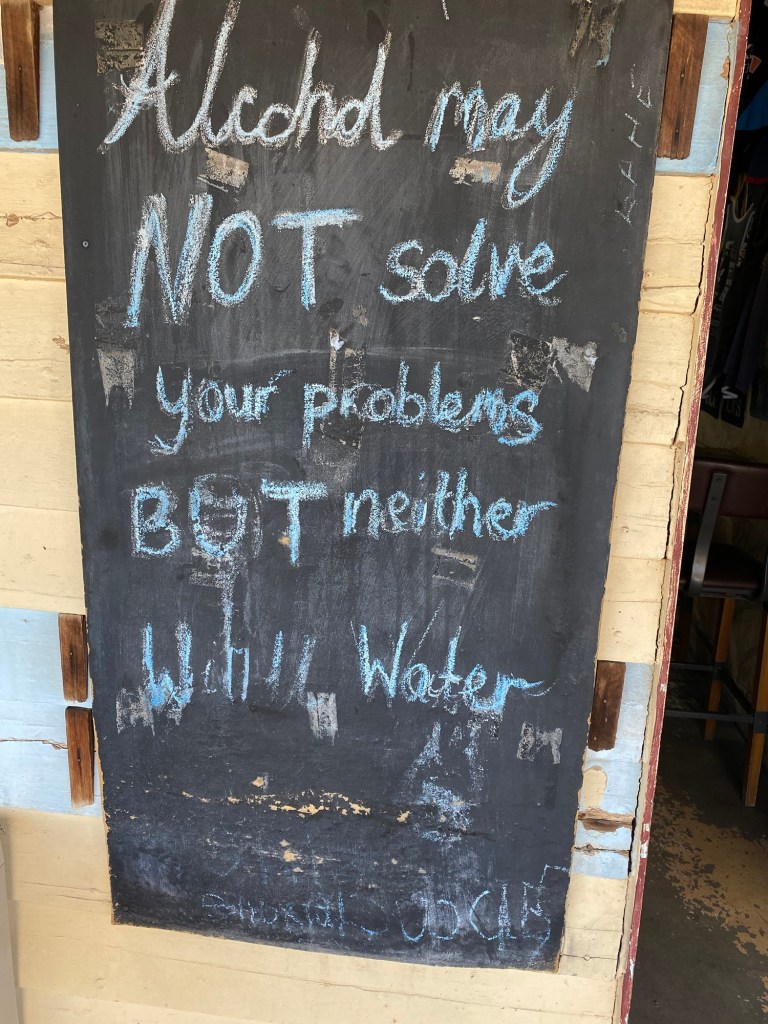 Alcohol may
NOT solve
your problems
BUT neither
Will Water